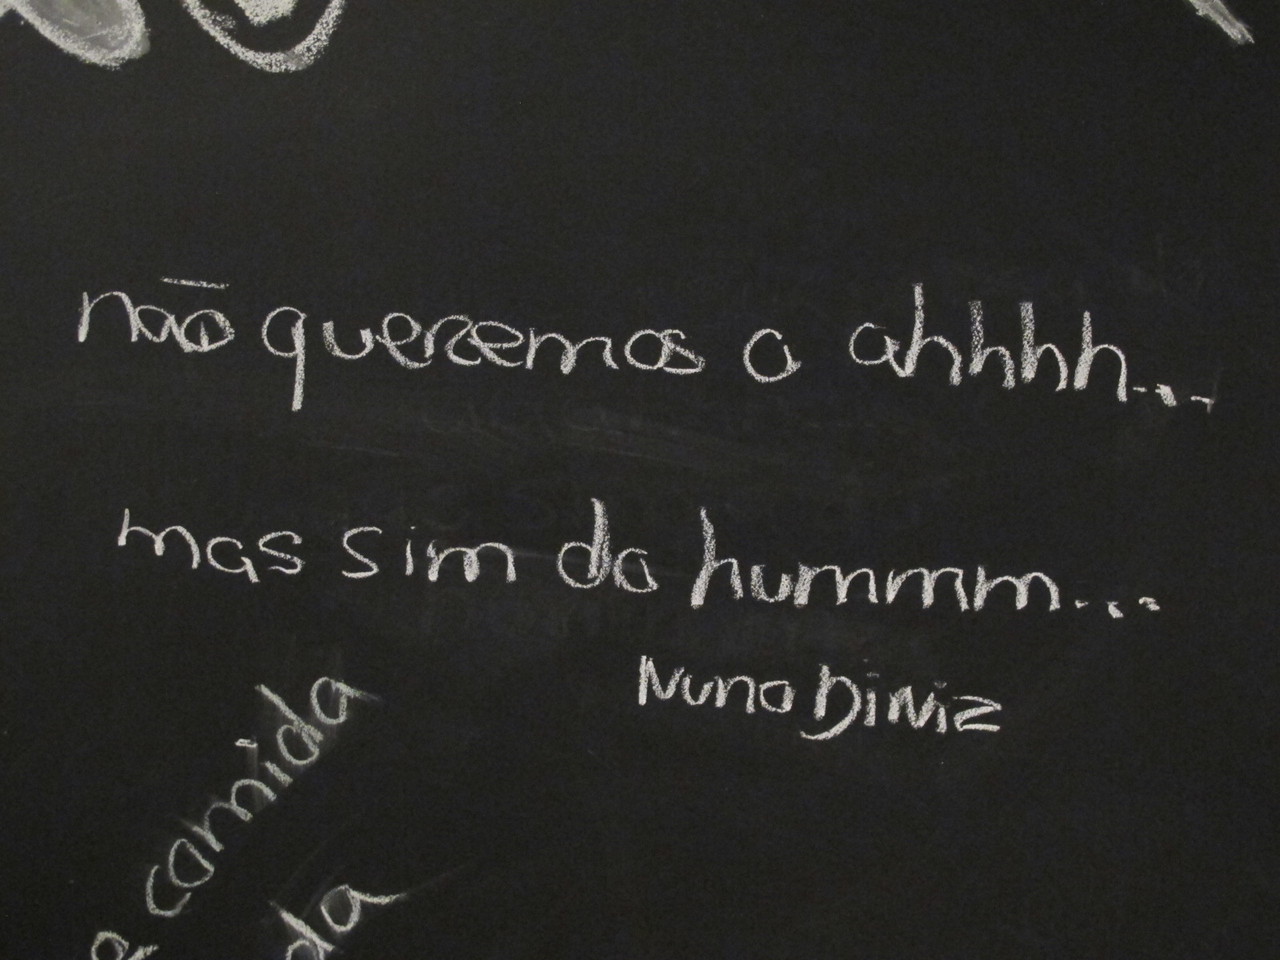 não queremos o ahhhh...
mas sim do hummmm...
Nuno Diniz
comida
da